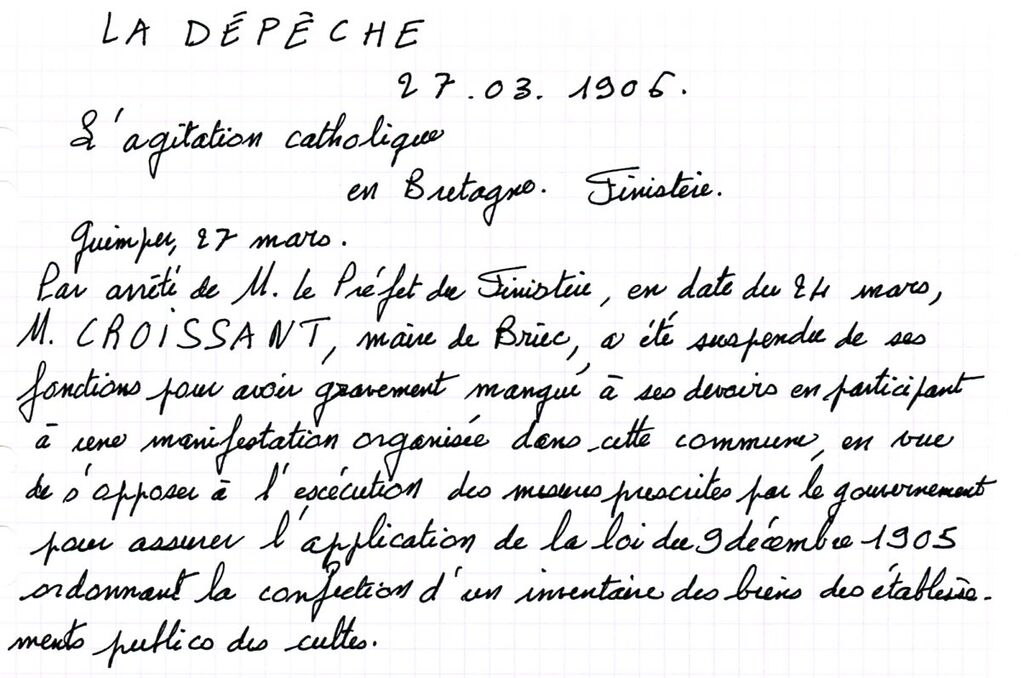 LA DÉPÊCHE
27.03.1906.
L'agitation catholique
en Bretagne. Finistère.
Quimper, 27 mars.
Par arrêté de M. le Préfet du Finistère, en date du 24 mars,
M. CROISSANT, maire de Briec, a été suspendu de ses
fonctions pour avoir gravement manqué à ses devoirs en participant
à une manifestation organisée dans cette commune, en vue
de s'opposer à l'exécution des mesures prescrites par le gouvernement
pour assurer l'application de la loi du 9 décembre 1905
ordonnant la confection d'un inventaire des biens des établisse-
ments publics des cultes.